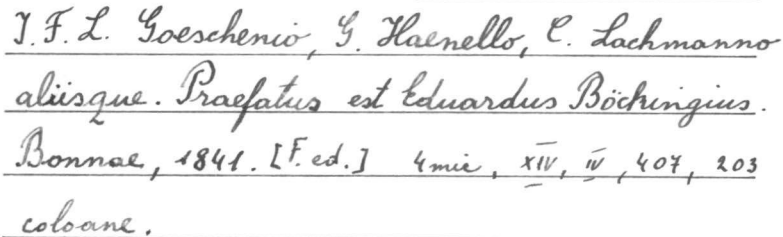 I. F. L. Goeschenio, G. Haenello, C. Lachmanno
aliisque. Praefatus est Eduardus Böckingius.
Bonnae, 1841. [F. ed.] 4 mic, XIV, IV, 407, 203
coloane.